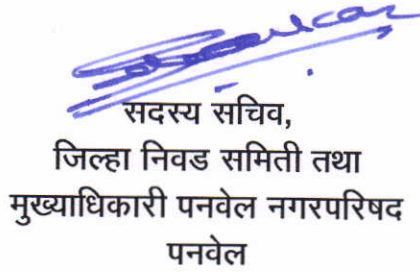 सदस्य सचिव,
जिल्हा निवड समिती तथा
मुख्याधिकारी पनवेल नगरपरिषद
पनवेल